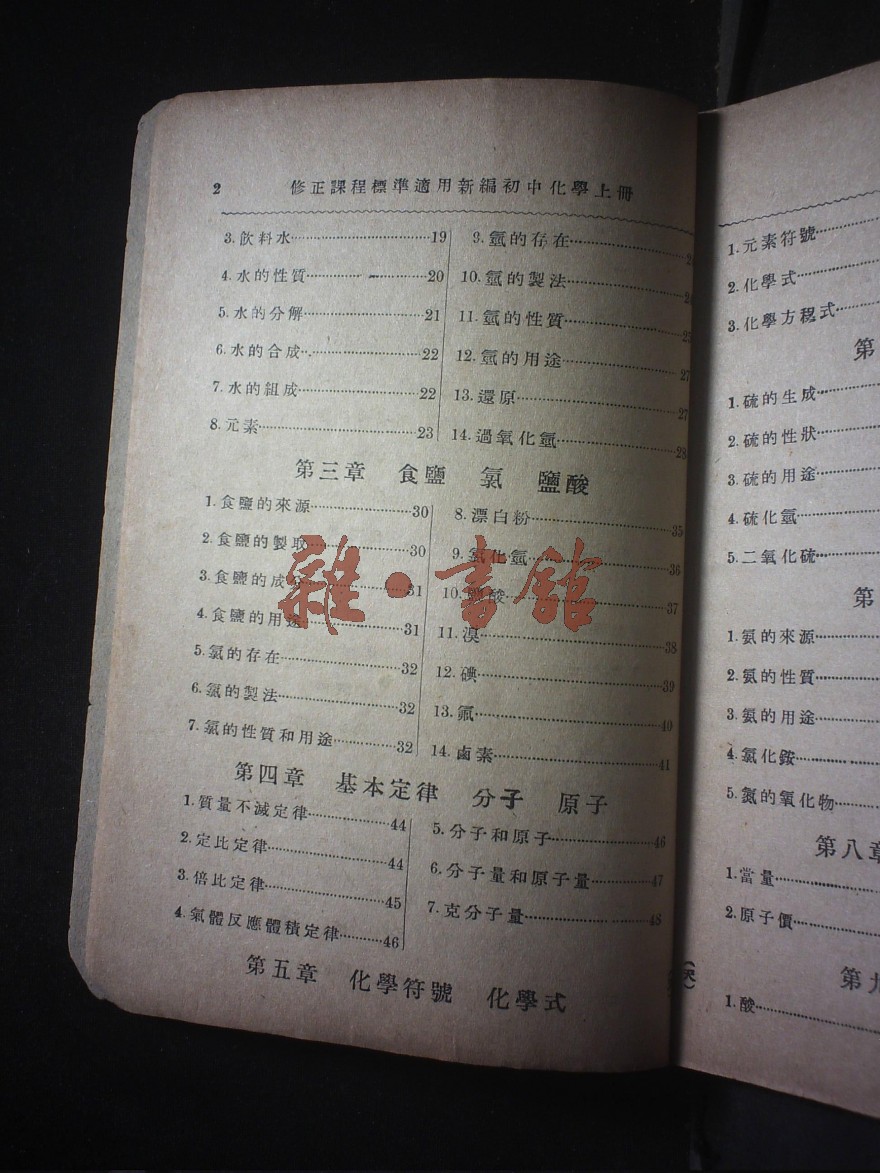 2
修正課程標準適用新編初中化學上冊
3. 飲料水……19
4. 水的性質……20
5. 水的分解……21
6. 水的合成……22
7. 水的組成……22
8. 元素……23
9. 氫的存在……
10. 氫的製法……
11. 氫的性質……25
12. 氫的用途……27
13. 還原……27
14. 過氧化氫……28
第三章 食鹽 氯 鹽酸
1. 食鹽的來源……30
2. 食鹽的製取……30
3. 食鹽的成分……31
4. 食鹽的用途……31
5. 氯的存在……32
6. 氯的製法……32
7. 氯的性質和用途……32
8. 漂白粉……35
9. 氯化氫……36
10. 鹽酸……37
11. 溴……38
12. 碘……39
13. 氟……40
14. 鹵素……41
第四章 基本定律 分子 原子
1. 質量不滅定律……44
2. 定比定律……44
3. 倍比定律……45
4. 氣體反應體積定律……46
5. 分子和原子……46
6. 分子量和原子量……47
7. 克分子量……48
第五章 化學符號 化學式
雜·書館
1. 元素符號……
2. 化學式……
3. 化學方程式……
第
1. 硫的生成……
2. 硫的性狀……
3. 硫的用途……
4. 硫化氫……
5. 二氧化硫……
第
1. 氨的來源……
2. 氨的性質……
3. 氨的用途……
4. 氯化銨……
5. 氮的氧化物……
第八章
1. 當量……
2. 原子價……
第九
1. 酸……